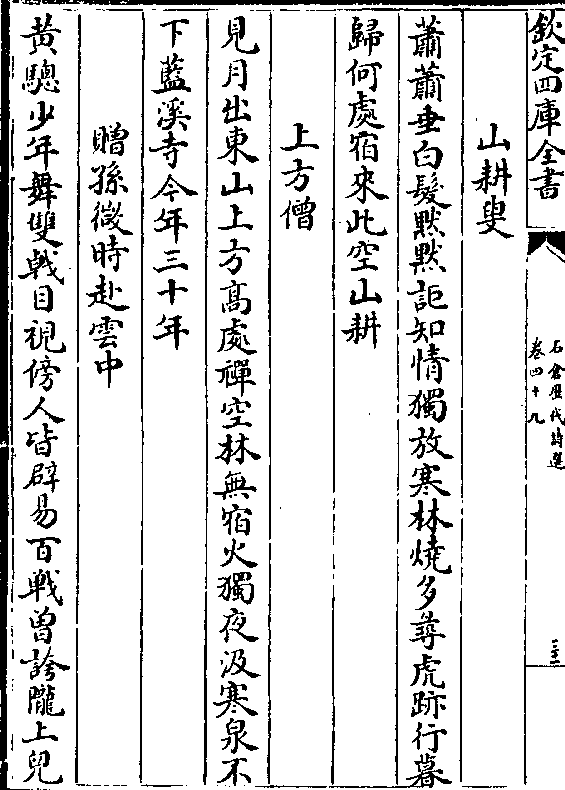 欽定四庫全書
石倉歷代詩選
卷四十九
三十一
山耕叟
蕭蕭垂白髮黙黙詎知情獨放寒林燒多尋虎跡行暮
歸何處宿來此空山耕
上方僧
見月出東山上方髙處禪空林無宿火獨夜汲寒泉不
下藍溪寺今年三十年
贈孫徵時赴雲中
黃驄少年舞雙戟目視傍人皆辟易百戰曾誇隴上兒